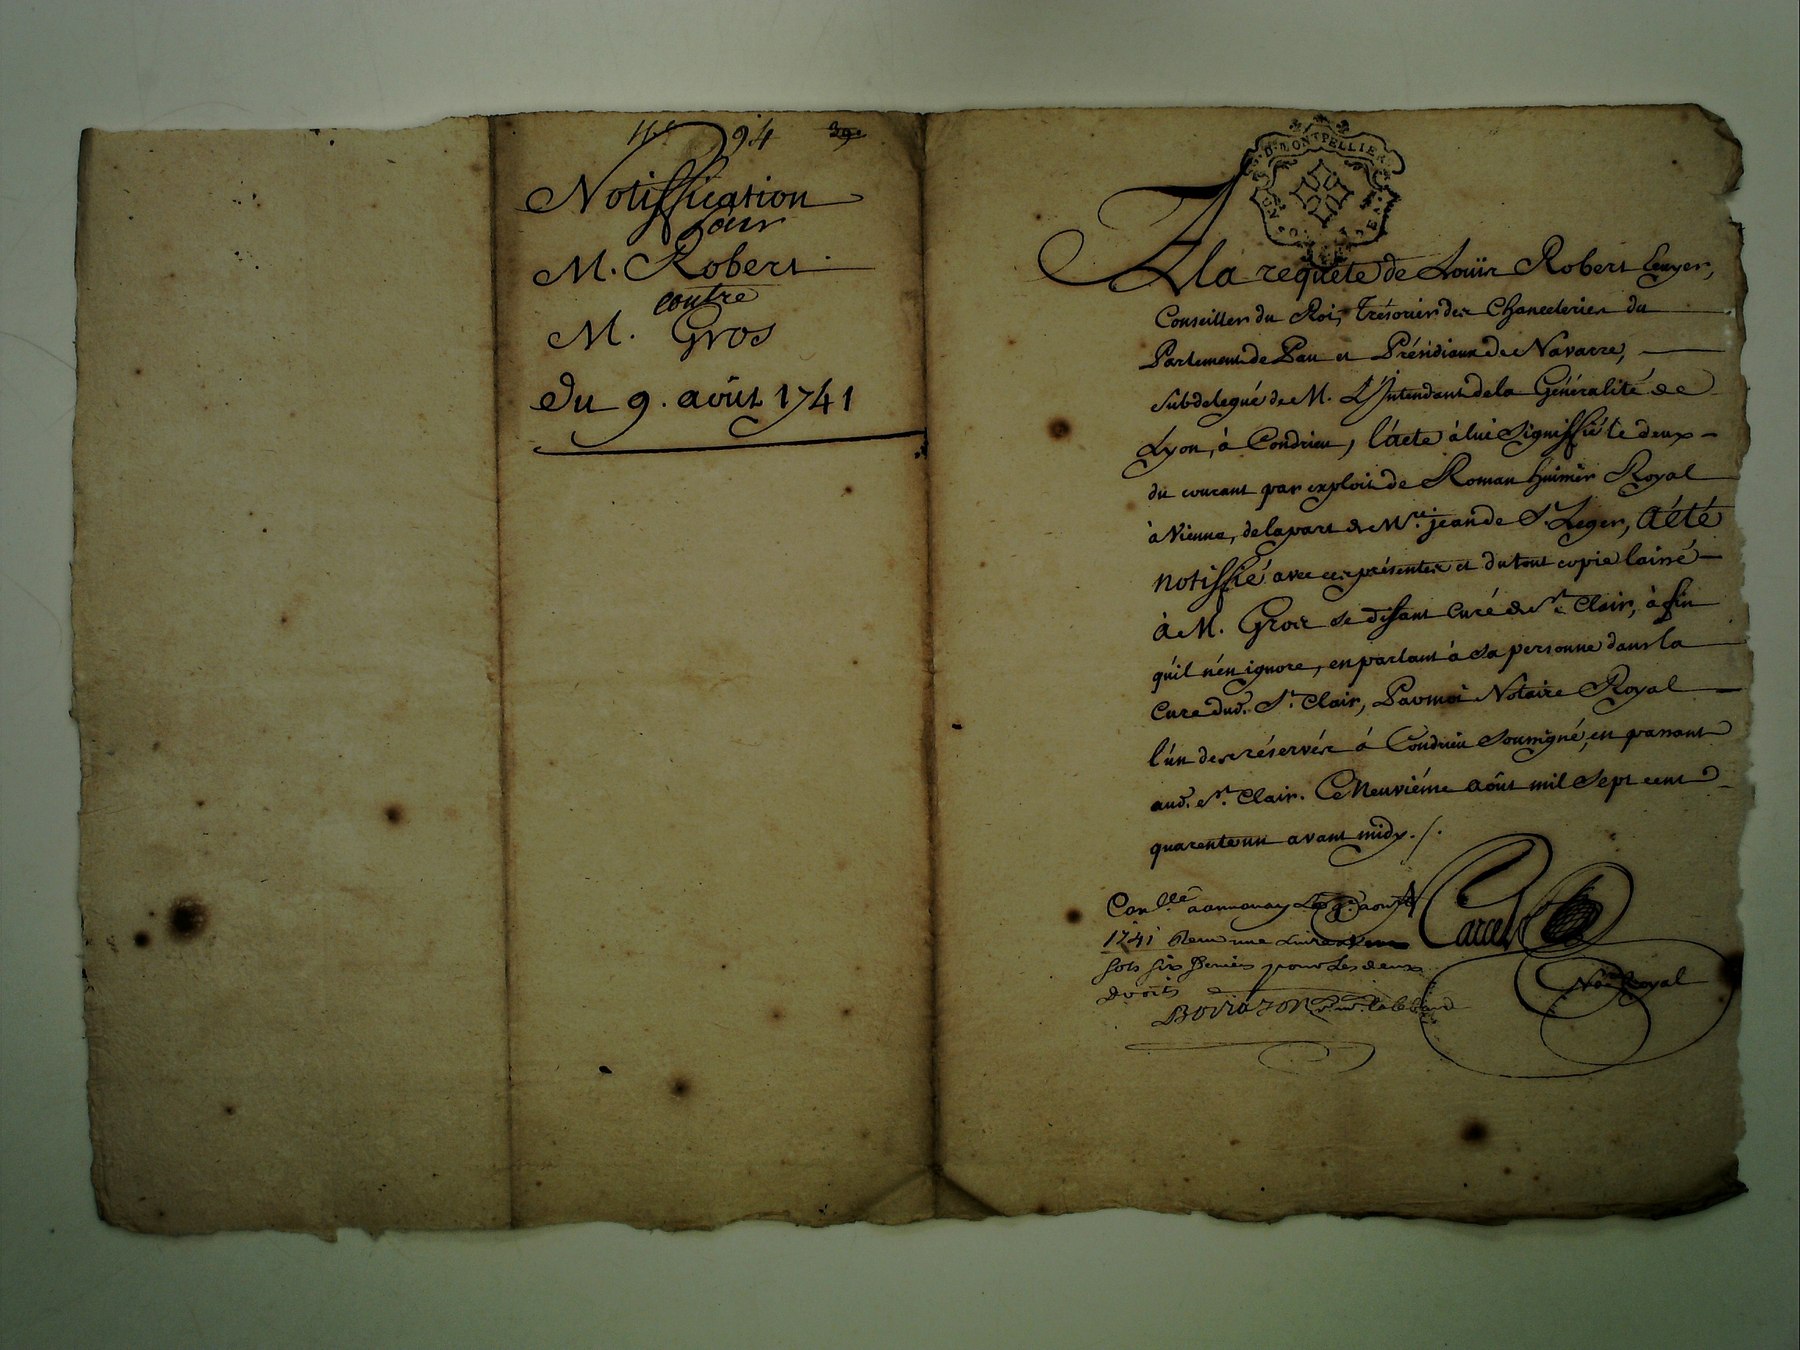 94
Notiffication
pour
M. Robert
contre
M. Gros
Du 9. août 1741
D. MONTPELLIER
A la requête de Loüis Robert Ecuyer,
Conseiller du Roi, Trésorier des Chanceleries du
Parlement de Pau et Présidiaux de Navarre,
subdelegué de M. L'Intendant de la Généralité de
Lyon, à Condrieu, l'acte à lui signiffié le deux
du courant par exploit de Roman huissier Royal
à Vienne, de la part de Mre. jean de St. Leger, A été
notiffié avec ces présentes et du tout copie laissé
à M. Gros se disant Curé de St. Clair, àfin
qu'il n'en ignore, en parlant à sa personne dans la
Cure dud. St. Clair, Par moi Notaire Royal
l'un des réservés à Condrieu soussigné, en passant
aud. St. Clair. Ce Neuviéme août mil sept cent
quarente un avant midy ./.
Con.lle a annonay Le 9e. aoust
1741 Receu une Livre
sols six Deniers pour Les deux
droits
Carcel
Nore. Royal